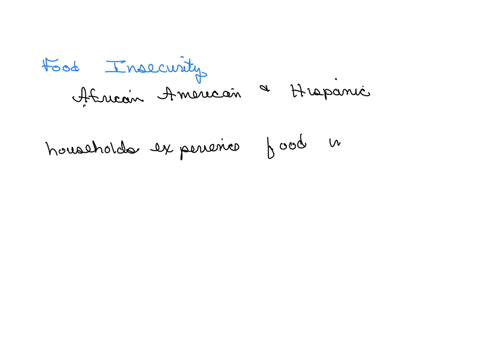 Food Insecurity
African American & Hispanic
households experience food